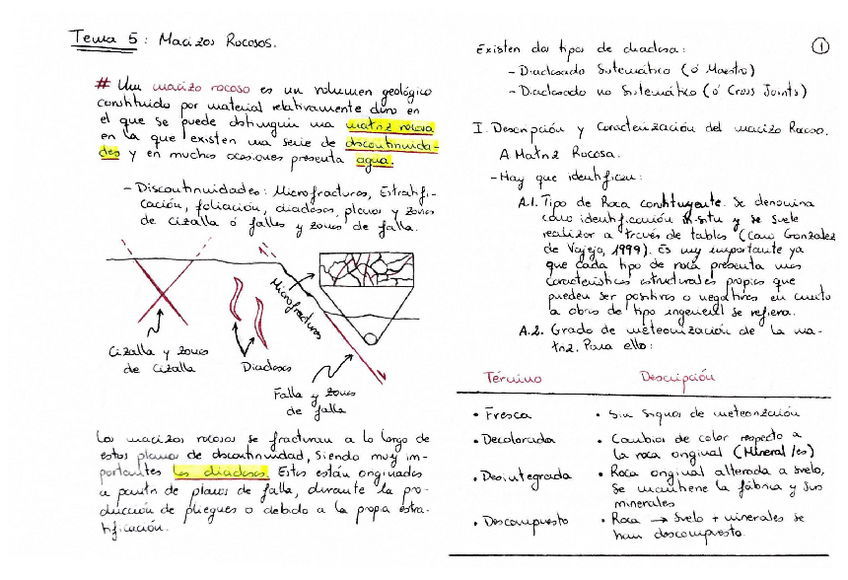 Tema 5: Macizos Rocosos.
# Un macizo rocoso es un volumen geológico
constituido por material relativamente duro en
el que se puede distinguir una matriz rocosa
en la que existen una serie de discontinuida-
des y en muchas ocasiones presenta agua.
- Discontinuidades: Microfracturas, Estratifi-
cación, foliación, diaclasas, planos y zonas
de cizalla ó fallas y zonas de falla.
Microfracturas
Cizalla y zonas
de cizalla
Diaclasas
Falla y zonas
de falla
Los macizos rocosos se fracturan a lo largo de
estos planos de discontinuidad, siendo muy im-
portantes las diaclasas. Estas están originadas
a partir de planos de falla, durante la pro-
ducción de pliegues o debido a la propia estra-
tificación.
1
Existen dos tipos de diaclasa:
- Diaclasado Sistemático (ó Maestro)
- Diaclasado no Sistemático (ó Cross Joints)
I. Descripción y Caracterización del macizo Rocoso.
A. Matriz Rocosa.
- Hay que identificar:
A.1. Tipo de Roca constituyente. Se denomina
como identificación in situ y se suele
realizar a través de tablas (Como González
de Vallejo, 1999). Es muy importante ya
que cada tipo de roca presenta unas
características estructurales propias que
pueden ser positivas o negativas en cuanto
a obras de tipo ingenieril se refiera.
A.2. Grado de meteorización de la ma-
triz. Para ello:
Término Descripción
• Fresca • Sin signos de meteorización
• Decolorada • Cambios de color respecto a
la roca original (Mineral/es)
• Desintegrada • Roca original alterada a suelo,
se mantiene la fábrica y sus
minerales
• Descompuesto • Roca → suelo + minerales se
han descompuesto.